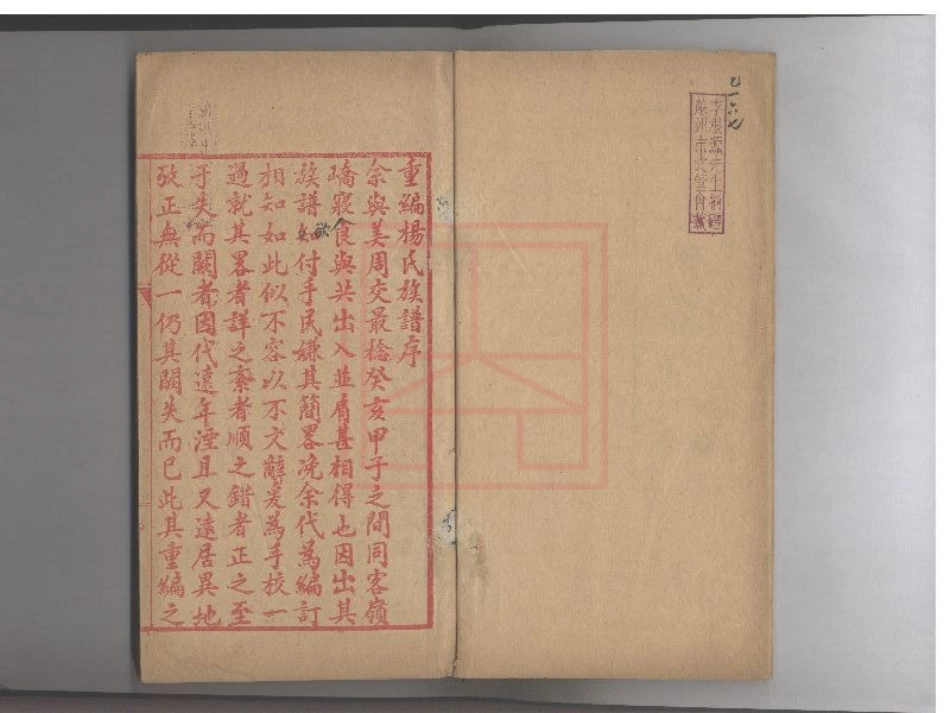 己一六七
李根源先生捐贈
重編楊氏族譜序
余與美周交最稔癸亥甲子之間同客嶺
嶠寢食與共出入並肩甚相得也因出其
族譜欲付手民嫌其簡畧浼余代爲編訂
相知如此似不容以不文辭爰爲手校一
過就其畧者詳之紊者順之錯者正之至
于失而闕者因代遠年湮且又遠居異地
攷正無從一仍其闕失而已此其重編之